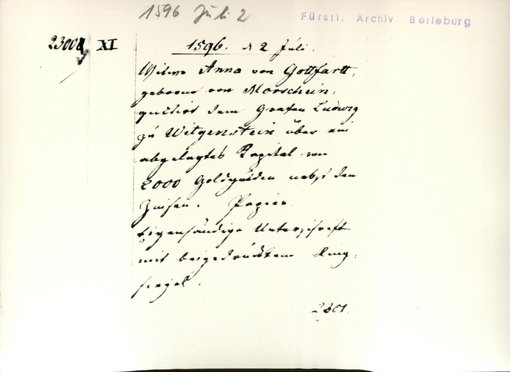 1596 Juli 2
Fürstl. Archiv Berleburg
XI
1596. d 2 Juli.
Witwe Anna von Gottfartt,
geborene von Morschein,
quittirt dem Grafen Ludwig
zu Witgenstein über ein
abgelegtes Kapital von
2000 Goldgulden nebst den
Zinsen. Papier
Eigenhändige Unterschrift
mit beigedrücktem Ring-
siegel.